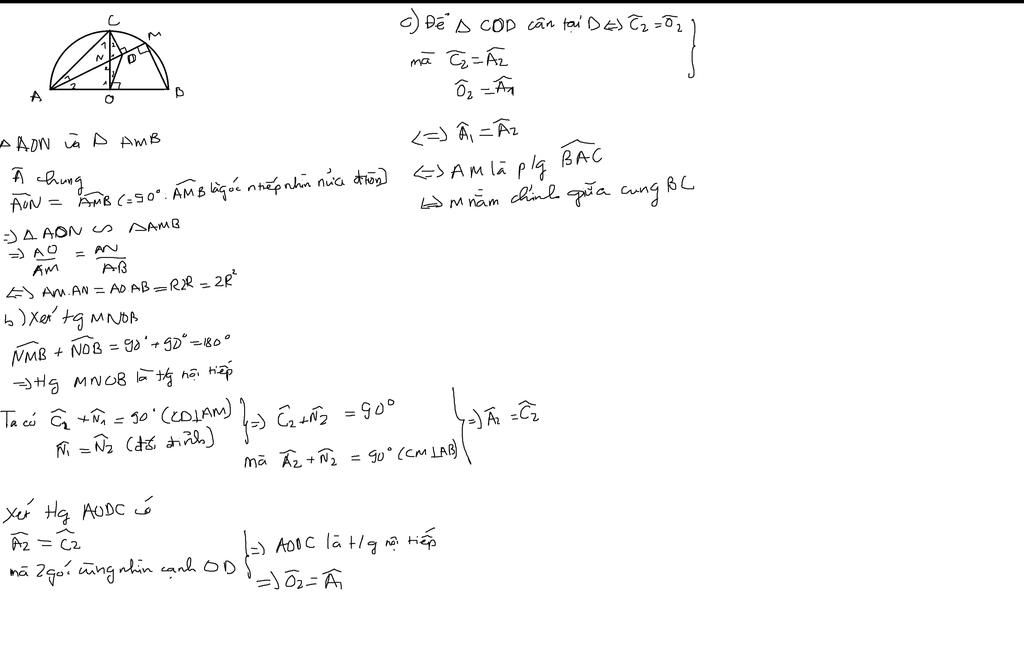 C
M
N
D
A
O
B
Δ AON và Δ AMB
Â chung
AON = AMB (= 90°. AMB là góc ntiếp nhìn nửa đtròn)
=> Δ AON ∽ ΔAMB
=> AO/AM = AN/AB
<=> AM.AN = AO AB = R2R = 2R²
b) Xét tg MNOB
NMB + NOB = 90° + 90° = 180°
=> tg MNOB là t/g nội tiếp
Ta có Ĉ₂ + N̂₁ = 90° (CD⊥AM)
N̂₁ = N̂₂ (đối đỉnh)
=> Ĉ₂ + N̂₂ = 90°
mà Â₂ + N̂₂ = 90° (CM⊥AB)
=> Â₂ = Ĉ₂
Xét tg AODC có
Â₂ = Ĉ₂
mà 2 góc cùng nhìn cạnh OD
=> AODC là t/g nội tiếp
=> Ô₂ = Â₁
c) Để Δ COD cân tại D <=> Ĉ₂ = Ô₂
mà Ĉ₂ = Â₂
Ô₂ = Â₁
<=> Â₁ = Â₂
<=> AM là p/g BAC
<=> M nằm chính giữa cung BC